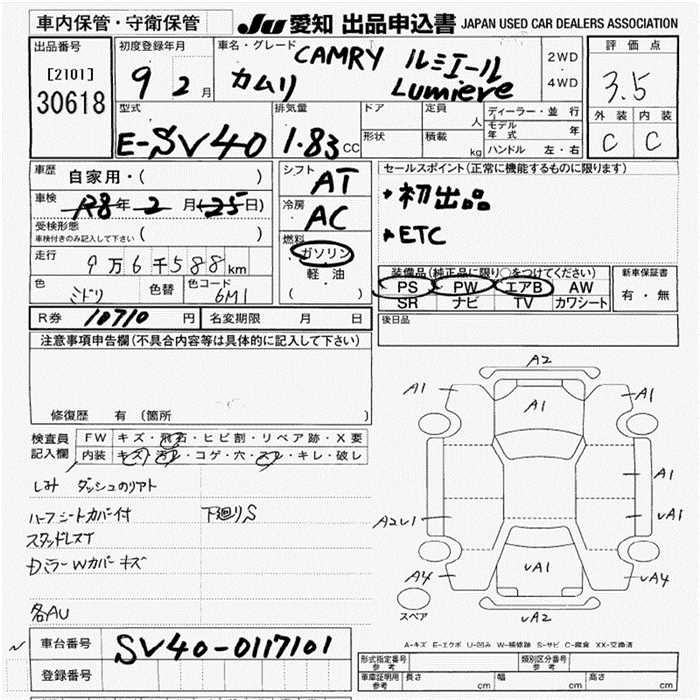 車内保管・守衛保管
JU 愛知 出品申込書 JAPAN USED CAR DEALERS ASSOCIATION
出品番号
[2101]
30618
初度登録年月
9 2 月
車名・グレード
CAMRY ルミエール
カムリ Lumiere
2WD
4WD
評価点
3.5
外装 内装
C C
型式
E-SV40
排気量
1.83 CC
ドア
形状
定員 人
積載 kg
ディーラー・並行
モデル年式 年
ハンドル 左・右
車歴 自家用・( )
車検 R8年 2 月(25日)
受検形態
車検付きのみ記入して下さい ( )
走行 9万6千588km
色 ミドリ 色替 色コード 6M1
シフト AT
冷房 AC
燃料
ガソリン
軽油
( )
セールスポイント(正常に機能するものに限ります)
・初出品
・ETC
装備品(純正品に限り○をつけてください)
PS PW エアB AW
SR ナビ TV カワシート
新車保証書
有・無
R券 10710 円 名変期限 月 日
後日品
注意事項申告欄(不具合内容等は具体的に記入して下さい)
修復歴 有 (箇所 )
検査員記入欄
FW キズ・飛石・ヒビ割・リペア跡・X要
内装 キズ・汚レ・コゲ・穴・スレ・キレ・破レ
しみ ダッシュのリアト
ハーフシートカバー付 下廻りS
スタッドレスT
Dミラー Wカバー キズ
各AU
A2
A1 A1 A1
A1
A2U1 UA1
A4 UA1 UA4
UA2
スペア
A-キズ E-エクボ U-凹み W-補修跡 S-サビ C-腐食 XX-交換済
車台番号 SV40-0117101
登録番号
形式指定番号 参考
類別区分番号 参考
車庫証明用 参考 長さ cm 幅 cm 高さ cm